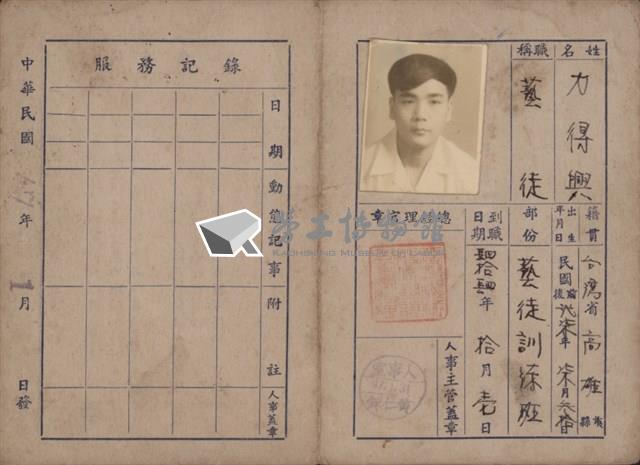 姓名 力得興
職稱 藝徒
籍貫 台灣省高雄縣
出生年月日 民國
部份 藝徒訓練班
到職日期 肆拾肆年拾月壱日
總經理官章
人事主管蓋章
服務記錄
日期
動態記事
附註
人事蓋章
中華民國 年 1月 日發
勞工博物館
KAOHSIUNG MUSEUM OF LABOR